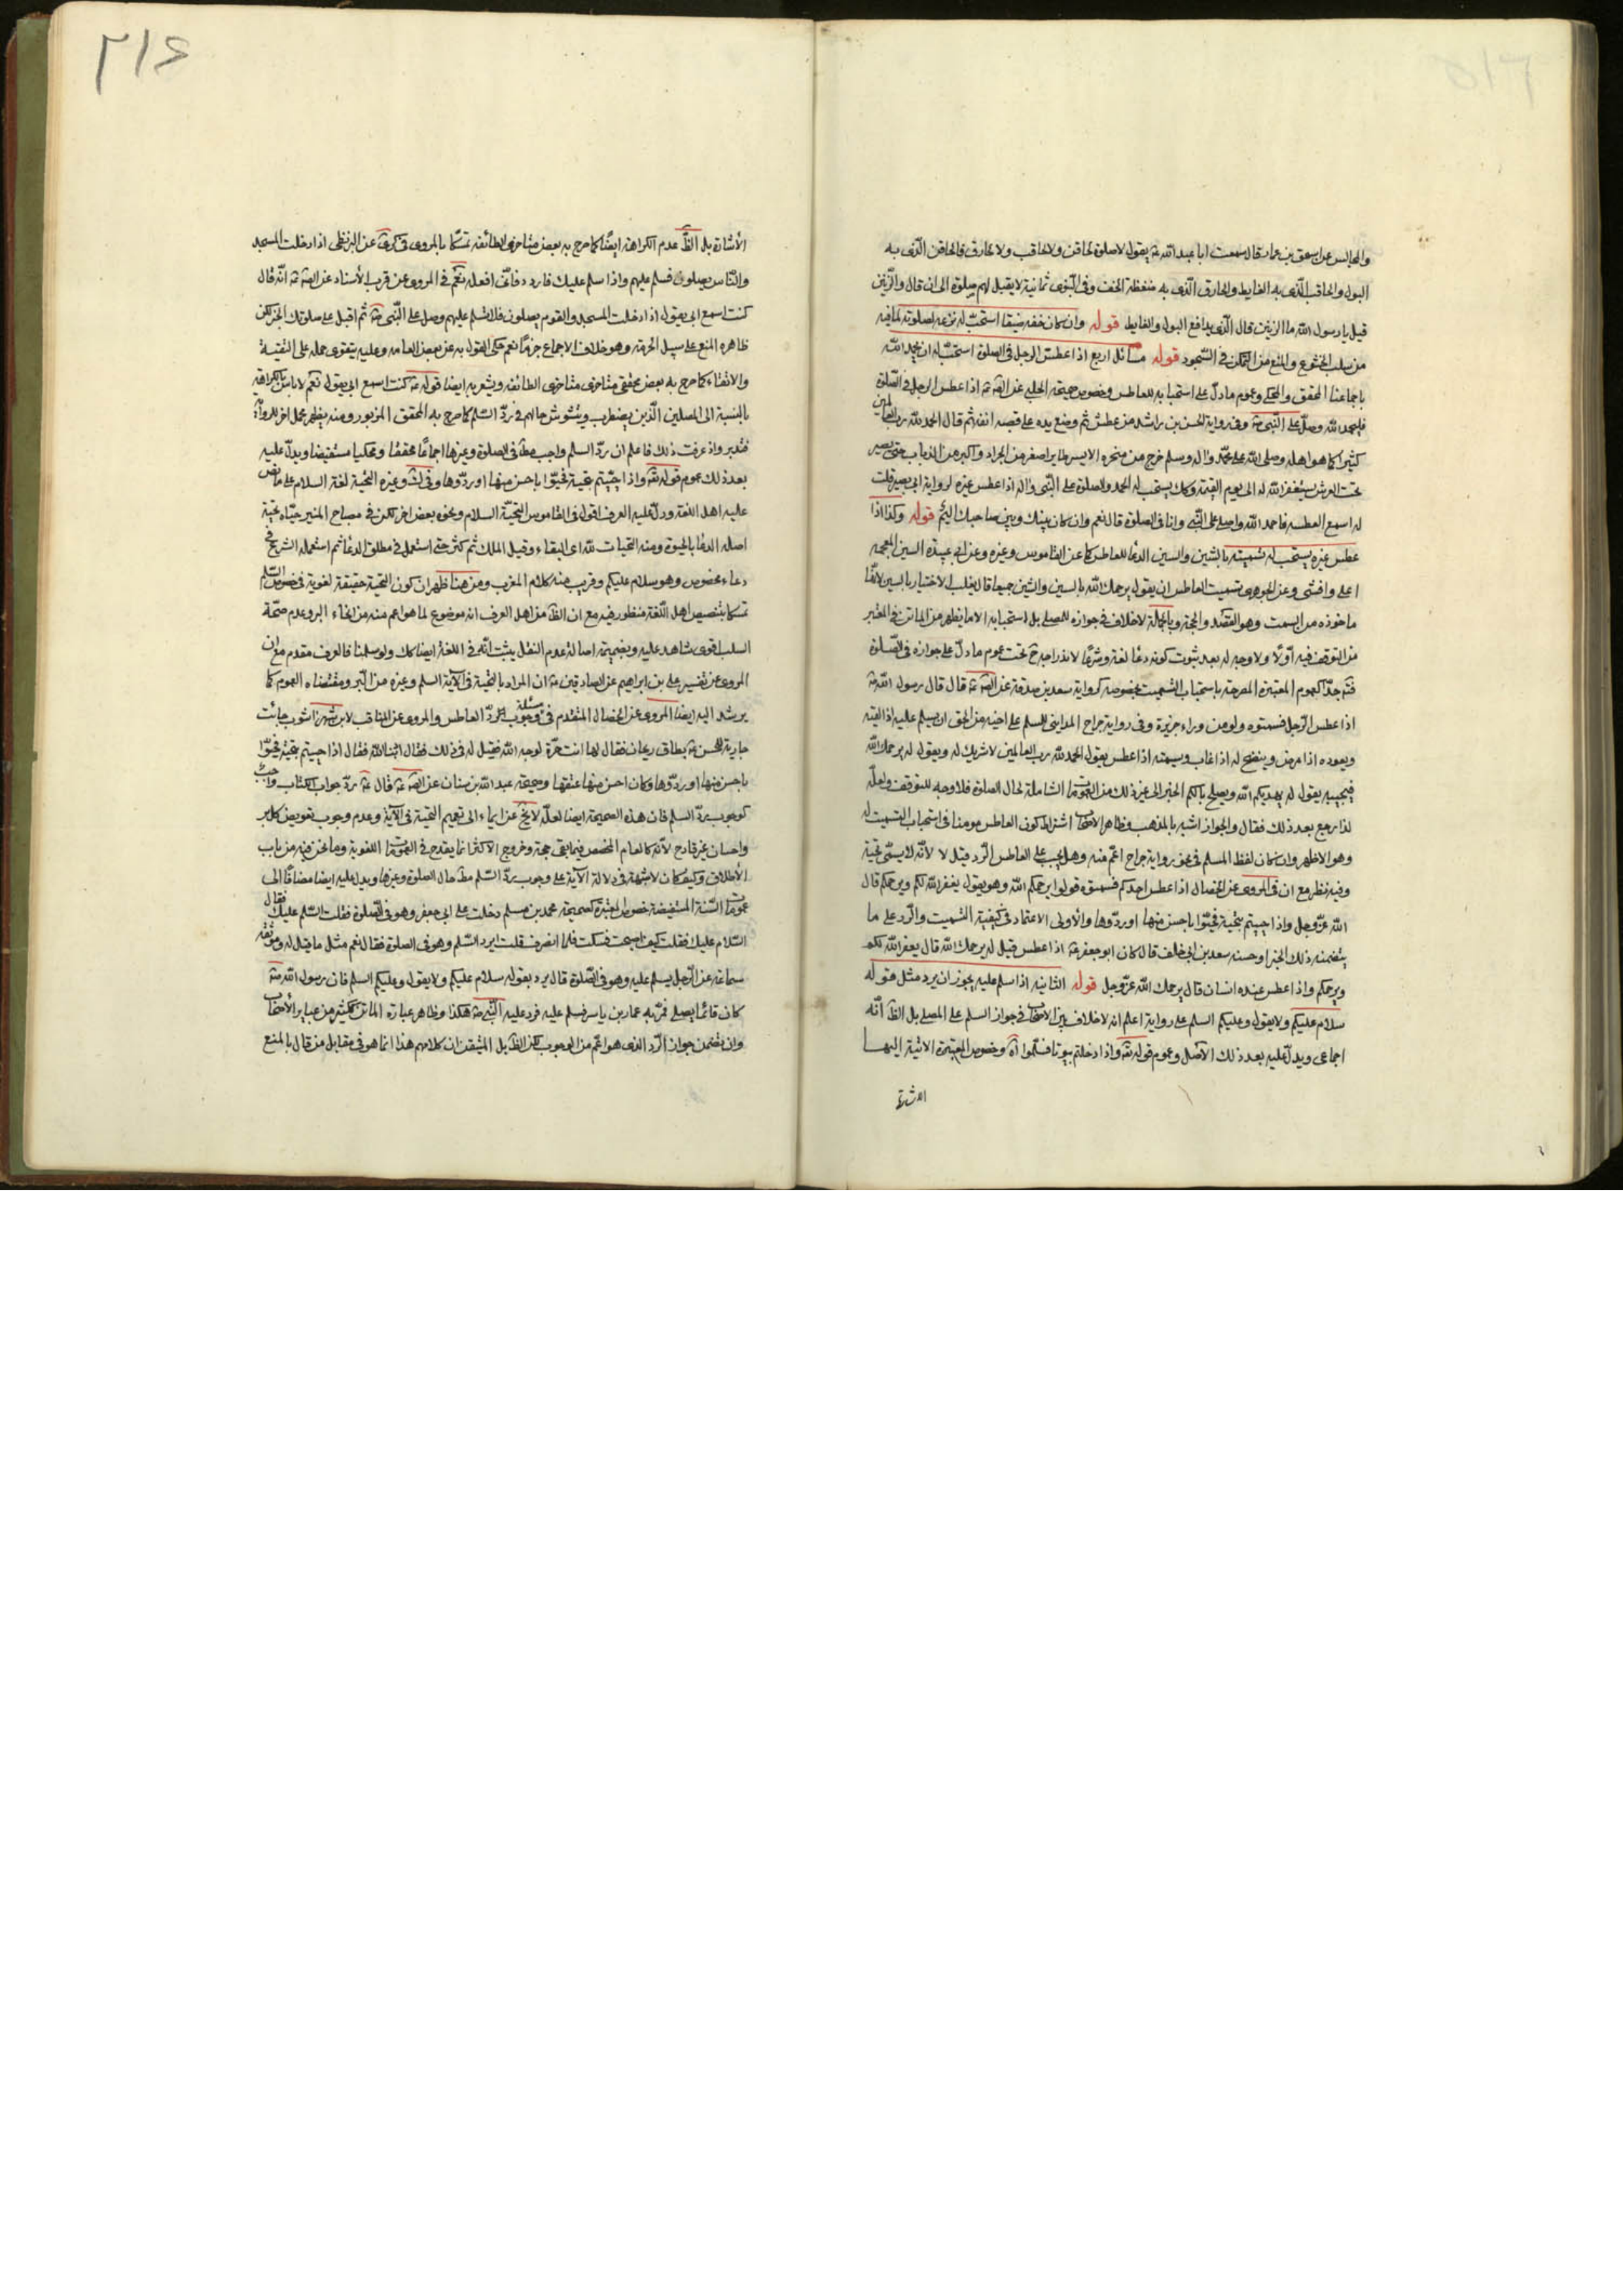 والمجالس عن اسحق بن عمار قال سمعت ابا عبد الله ع يقول لا صلوة لحاقن ولا لحاقب ولا لحازق فالحاقن الذى به
البول والحاقب الذى به الغايط والحازق الذى به ضغطة الخف وفى النبوى ثمانية لا يقبل لهم صلوة الى ان قال والزنين
قيل يا رسول الله ما الزنين قال الذى يدافع البول والغايط قوله وان كان خفه ضيقا استحب له نزعه لصلوته لما فيه
من سلب الخشوع والمنع من التمكن فى السجود قوله مسائل اربع اذا عطس الرجل فى الصلوة استحب له ان يحمد الله
باجماعنا المحقق والمحكى وعموم ما دل على استحبابه للعاطس وخصوص صحيحة الحلبى عن الصّ ع اذا عطس الرجل فى الصلوة
فليحمد الله وصل على النبى ص وفى رواية الحسن بن راشد من عطس ثم وضع يده على قصبة انفه ثم قال الحمد لله رب العالمين
كثيرا كما هو اهله وصلى الله على محمد واله وسلم خرج من منخره الايسر طاير اصغر من الجراد واكبر من الذباب حتى يصير
تحت العرش يستغفر الله له الى يوم القيمة وكك يستحب له الحمد والصلوة على النبى واله اذا عطس غيره لرواية ابى بصير قلت
له اسمع العطسة فاحمد الله واصلى على النبى وانا فى الصلوة قال نعم وان كان بينك وبين صاحبك اليم قوله وكذا اذا
عطس غيره يستحب له تسميته بالشين والسين الدعا للعاطس كما عن القاموس وغيره وعن ابى عبيدة السين المعجمة
اعلى وافشى وعن الجوهرى تسميت العاطس ان يقول يرحمك الله بالسين والشين جميعا قال تغلب الاختيار بالسين لانها
ماخوذه من السمت وهو القصد والمحجة وبالجملة لا خلاف فى جوازه للمصلى بل استحبابه الا ما يظهر من الماتن فى المعتبر
من التوقف فيه اولا ولا وجه له بعد ثبوت كونه دعا لغة وشرعا لاندراجه ح تحت عموم ما دل على جوازه فى الصلوة
فتم جدا كعموم المعتبرة المصرحة باستحباب التسميت بخصوصه كرواية سعد بن صدقة عن الصّ ع قال قال رسول الله ص
اذا عطس الرجل فسمتوه ولو من وراء جزيرة وفى رواية جراح المداينى للمسلم على اخيه من الحق ان يسلم عليه اذا لقيه
ويعوده اذا مرض وينصح له اذا غاب ويسمته اذا عطس يقول الحمد لله رب العالمين لا شريك له ويقول له يرحمك الله
فيجيبه يقول له يهديكم الله ويصلح بالكم الخبر الى غير ذلك من العمومات الشاملة لحال الصلوة فلا وجه للتوقف ولعله
لذا رجع بعد ذلك فقال والجواز اشبه بالمذهب وظاهر الاصحاب اشتراط كون العاطس مومنا فى استحباب التسميت له
وهو الاظهر وان كان لفظ المسلم فى نحو رواية جراح اعم منه وهل يجب على العاطس الرد قيل لا لانه لا يسمى تحية
وفيه نظر مع ان فى المروى عن الخصال اذا عطس احدكم فسمتوه قولوا يرحمكم الله وهو يقول يغفر الله لكم ويرحمكم قال
الله عز وجل واذا حييتم بتحية فحيوا باحسن منها او ردوها والاولى الاعتماد فى كيفية التسميت والرد على ما
يتضمنه ذلك الخبر او حسنه سعد بن ابى خلف قال كان ابو جعفر ع اذا عطس فقيل له يرحمك الله قال يغفر الله لكم
ويرحمكم واذا عطس عنده انسان قال يرحمك الله عز وجل قوله الثانية اذا سلم عليه يجوز ان يرد مثل قوله
سلام عليكم ولا يقول وعليكم السلم على رواية اعلم انه لا خلاف بين الاصحاب فى جواز السلم على المصلى بل الظ انه
اجماعى ويدل عليه بعد ذلك الاصل وعموم قوله تعالى واذا دخلتم بيوتا فسلموا اه وخصوص المعتبرة الاتية اليها
الاشارة
٢١٤
الاشارة بل الظ عدم الكراهة ايضا كما صرح به بعض متاخرى الطائفة تمسكا بالمروى فى كرى عن البزنطى اذا دخلت المسجد
والناس يصلون فسلم عليهم واذا سلم عليك فاردد فانى افعله نعم فى المروى عن قرب الاسناد عن الصّ ع انه قال
كنت اسمع ابى يقول اذا دخلت المسجد والقوم يصلون فلا تسلم عليهم وصل على النبى ص ثم اقبل على صلوتك الخبر لكن
ظاهره المنع على سبيل الحرمة وهو خلاف الاجماع جزما نعم حكى القول به عن بعض العامة وعليه يتقوى حمله على التقية
والاتقاء كما صرح به بعض محققى متاخرى متاخرى الطائفة ويشعر به ايضا قوله ع كنت اسمع ابى يقول نعم لا باس بالكراهة
بالنسبة الى المصلين الذين يضطرب ويتشوش حالهم فى رد السلم كما صرح به المحقق المزبور ومنه يظهر محمل اخر للرواية
فتدبر واذ عرفت ذلك فاعلم ان رد السلم واجب مط فى الصلوة وغيرها اجماعا محققا ومحكيا مستفيضا ويدل عليه
بعد ذلك عموم قوله تعالى واذا حييتم بتحية فحيوا باحسن منها او ردوها وفى لك وغيره التحية لغة السلام على ما نص
عليه اهل اللغة ودل عليه العرف اقول فى القاموس التحية السلام ونحوه بعض اخر لكن فى مصباح المنير حياه تحية
اصله الدعا بالحيوة ومنه التحيات لله اى البقاء وقيل الملك ثم كثر حتى استعمل فى مطلق الدعا ثم استعمله الشرع فى
دعاء مخصوص وهو سلام عليكم وقريب منه كلام المغرب ومن هنا ظهر ان كون التحية حقيقة لغوية فى خصوص السلم
تمسكا بتنصيص اهل اللغة منظور فيه مع ان الظ من اهل العرف انه موضوع لما هو اعم منه من انحاء البر وعدم صحة
السلب اقوى شاهد عليه وبضميمة اصالة عدم النقل يثبت انه فى اللغة ايضا كك ولو سلمنا فالعرف مقدم مع ان
المروى عن تفسير على بن ابراهيم عن الصادقين ع ان المراد بالتحية فى الاية السلم وغيره من البر ومقتضاه العموم كما
يرشد اليه ايضا المروى عن الخصال المتقدم فى مسئلة وجوب الرد العاطس والمروى عن المناقب لابن شهراشوب جائت
جارية للحسن ع بطاق ريحان فقال لها انت حرة لوجه الله فقيل له فى ذلك فقال ادبنا الله فقال اذا حييتم بتحية فحيوا
باحسن منها او ردوها وكان احسن منها عتقها وصحيحة عبد الله بن سنان عن الصّ ع قال ع رد جواب الكتاب واجب
كوجوب رد السلم فان هذه الصحيحة ايضا لعله لا يخ عن ايماء الى تعميم التحية فى الاية وعدم وجوب تعويض كل بر
واحسان غير قادح لانه كالعام المخصص فيما بقى حجة وخروج الاكثر انما يقدح فى العمومات اللغوية وما نحن فيه من باب
الاطلاق وكيف كان لا شبهة فى دلالة الاية على وجوب رد السلم مط حال الصلوة وغيرها ويدل عليه ايضا مضافا الى
عمومات السنة المستفيضة خصوص المعتبرة كصحيحة محمد بن مسلم دخلت على ابى جعفر وهو فى الصلوة فقلت السلم عليك فقال
السلام عليك فقلت كيف اصبحت فسكت فلما انصرف قلت ايرد السلم وهو فى الصلوة فقال نعم مثل ما قيل له وموثقة
سماعة عن الرجل يسلم عليه وهو فى الصلوة قال يرد بقوله سلام عليكم ولا يقول وعليكم السلم فان رسول الله ص
كان قائما يصلى فمر به عمار بن ياسر فسلم عليه فرد عليه النبى ص هكذا وظاهر عبارة الماتن ككثير من عباير الاصحاب
وان يتضمن جواز الرد الذى هو اعم من الوجوب لكن الظ بل المتيقن ان كلامهم هذا انما هو فى مقابل من قال بالمنع